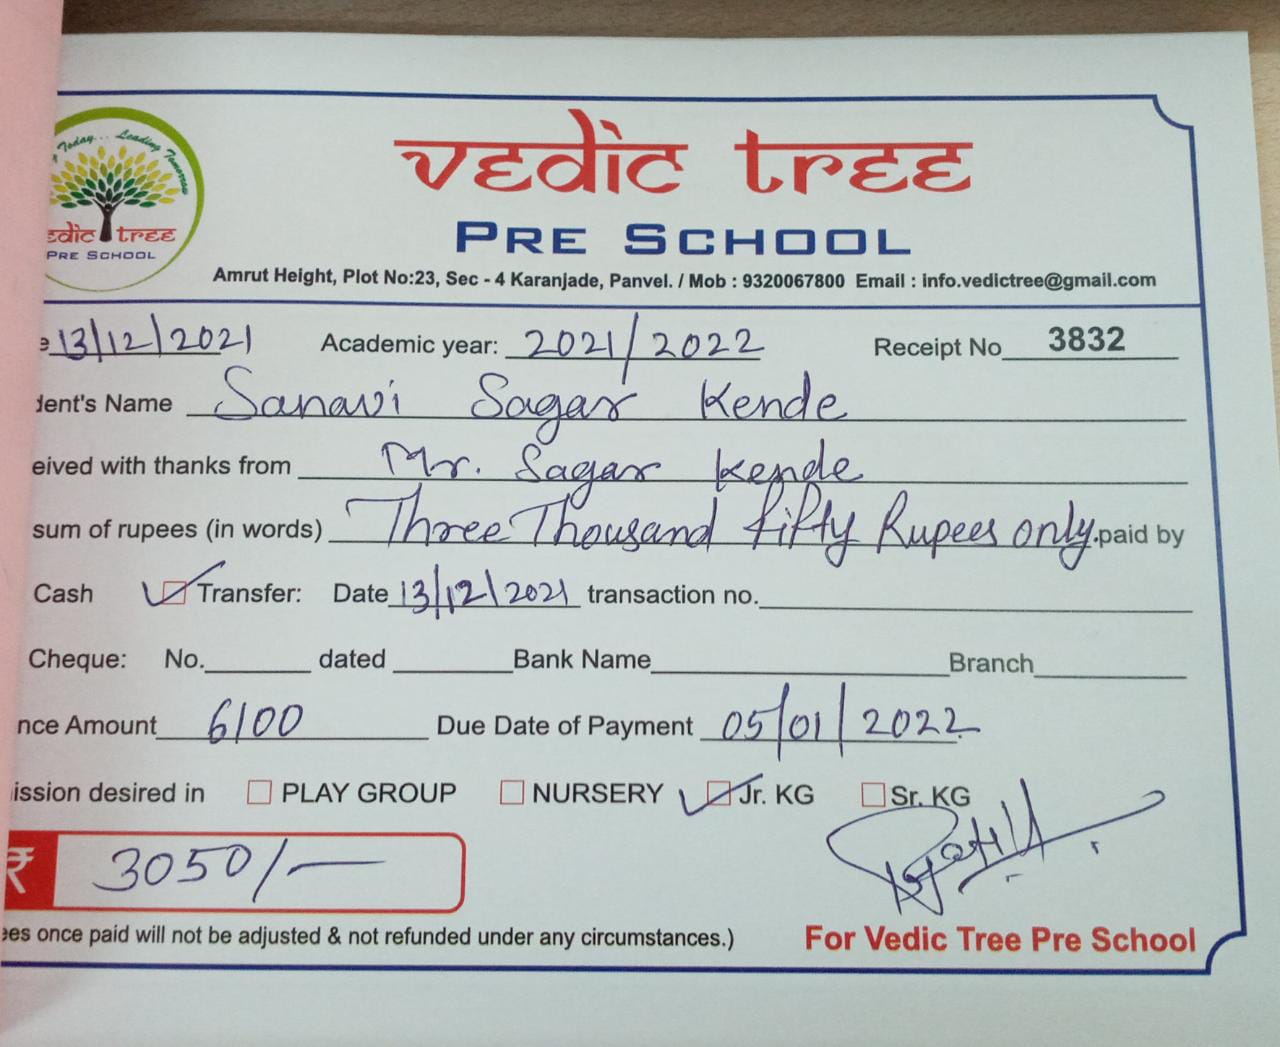 Today... Leading Tomorrow
edic tree
PRE SCHOOL
vedic tree
PRE SCHOOL
Amrut Height, Plot No:23, Sec - 4 Karanjade, Panvel. / Mob : 9320067800 Email : info.vedictree@gmail.com
e 13/12/2021 Academic year: 2021/2022 Receipt No 3832
dent's Name Sanavi Sagar Kende
eived with thanks from Mr. Sagar Kende
sum of rupees (in words) Three Thousand Fifty Rupees only. paid by
Cash Transfer: Date 13/12/2021 transaction no.
Cheque: No. dated Bank Name Branch
nce Amount 6100 Due Date of Payment 05/01/2022
ission desired in PLAY GROUP NURSERY Jr. KG Sr. KG
₹ 3050/-
ees once paid will not be adjusted & not refunded under any circumstances.) For Vedic Tree Pre School